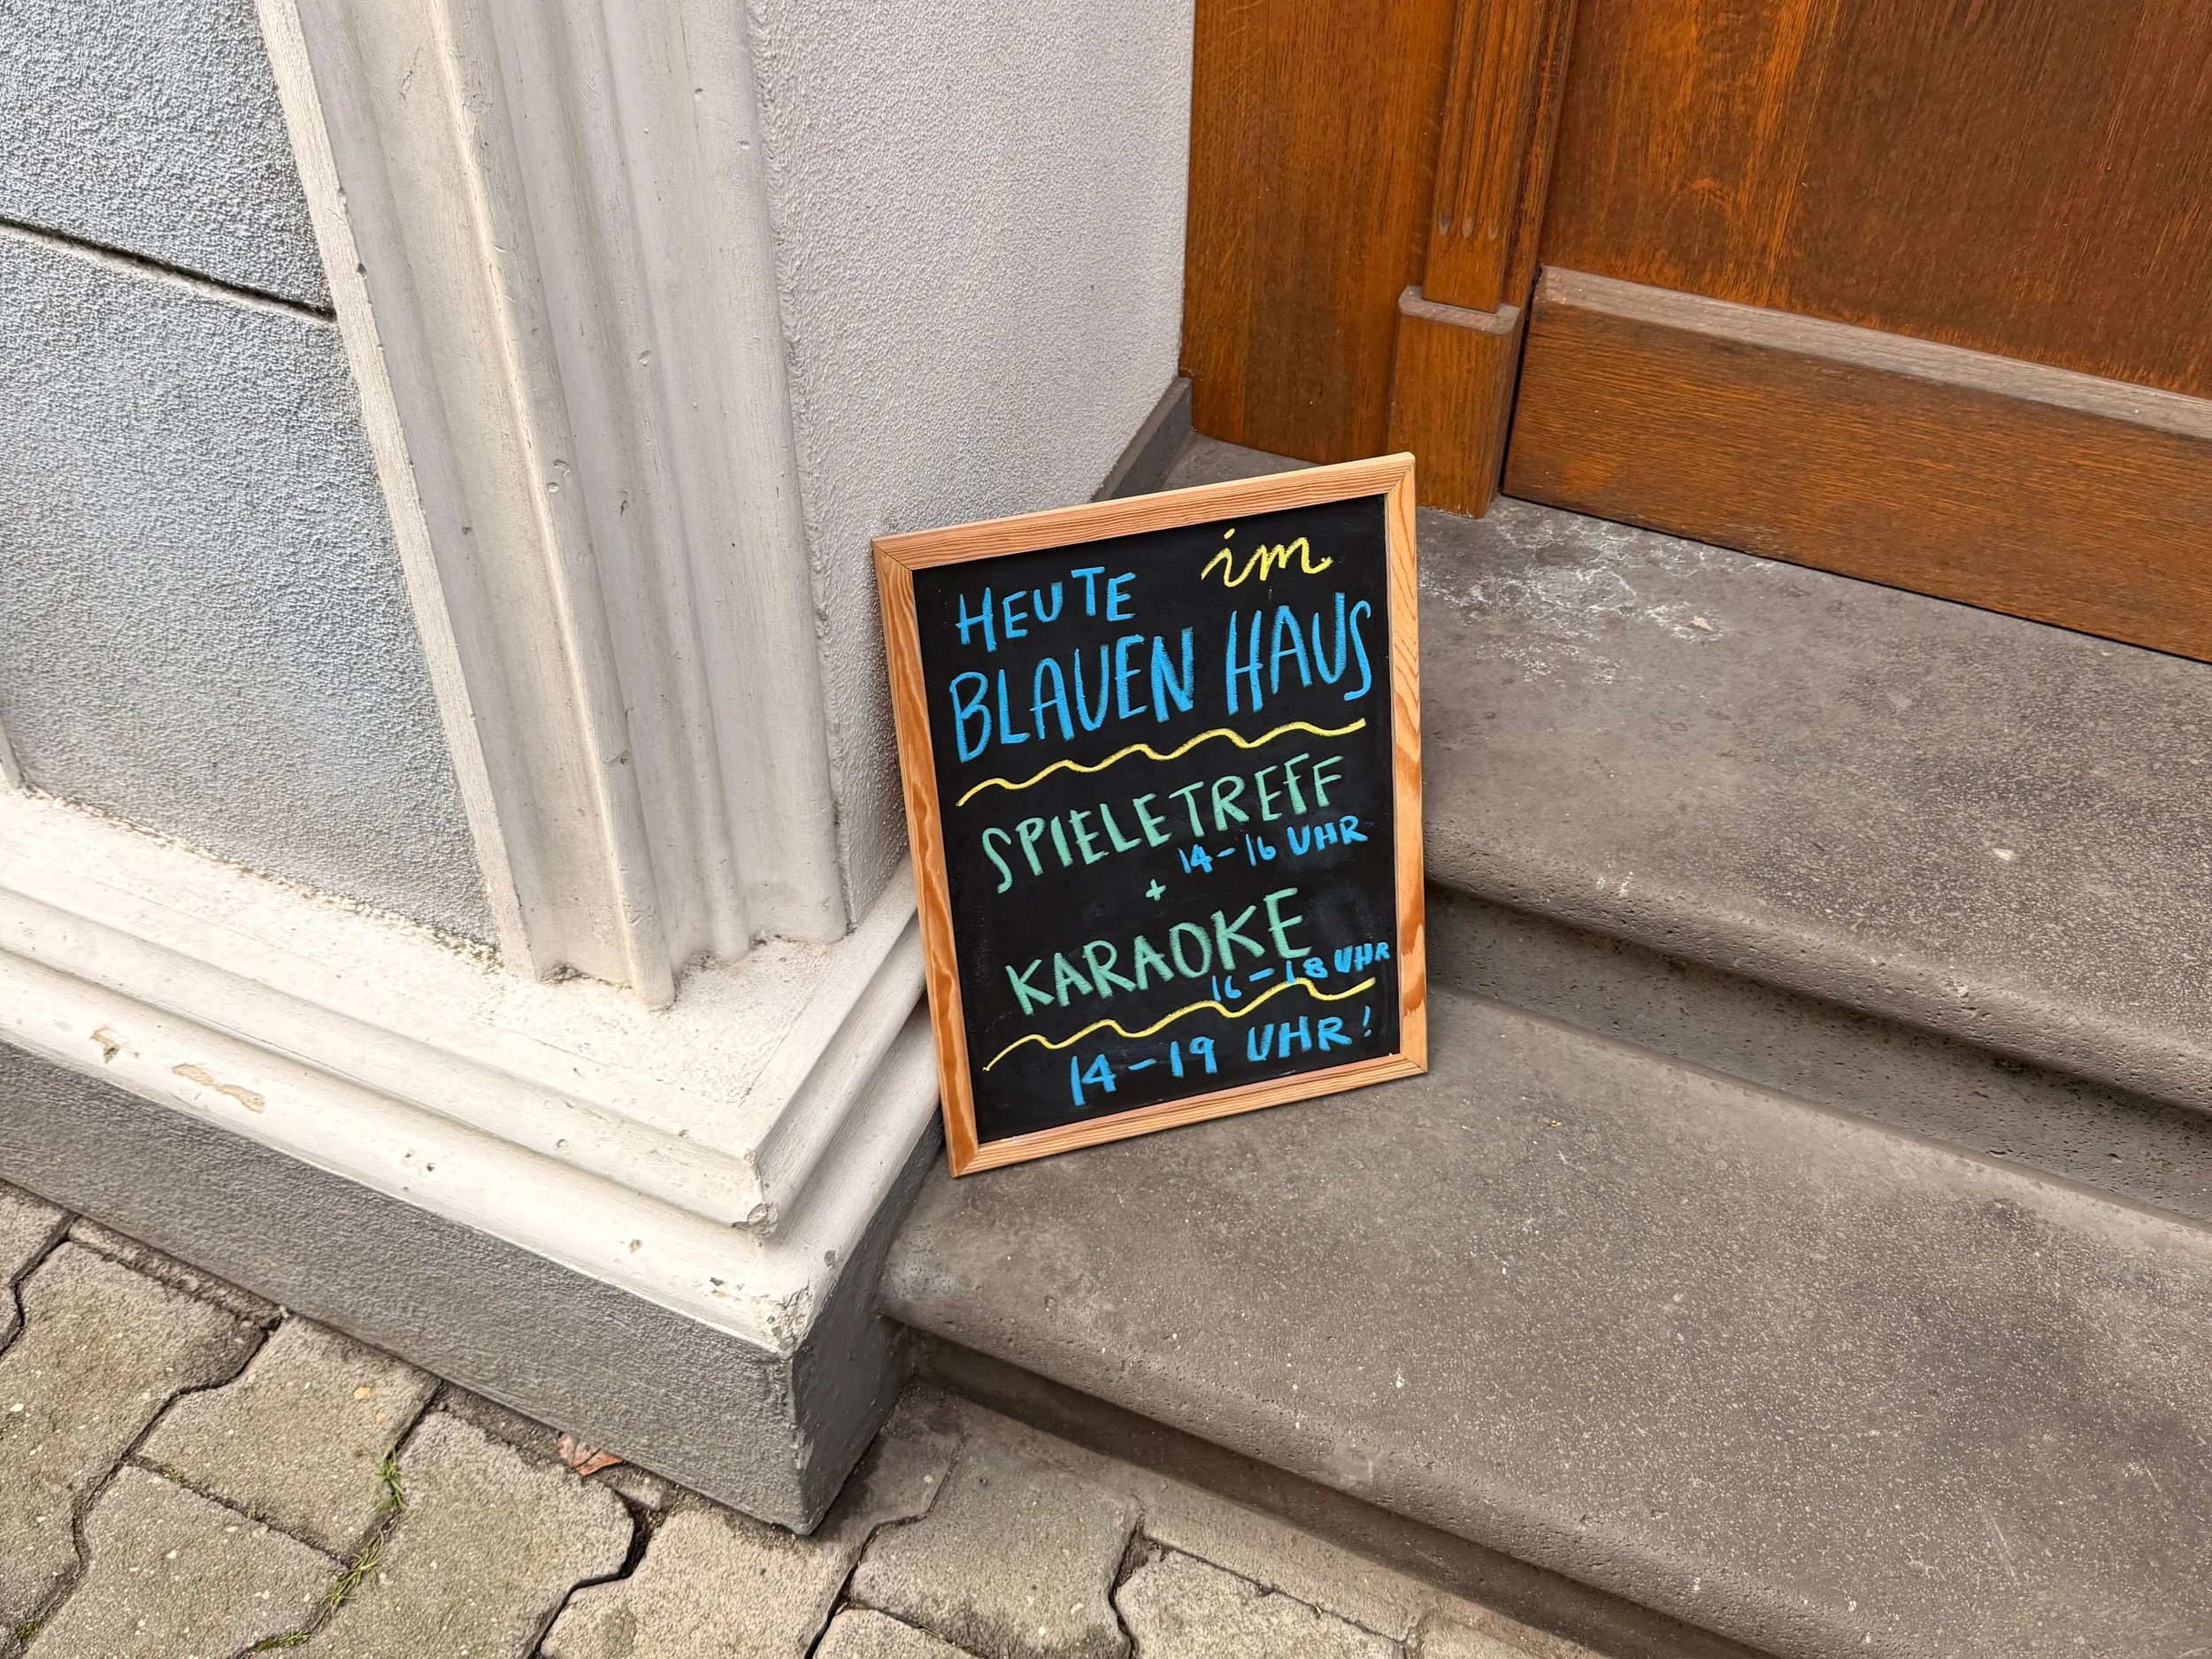 HEUTE im
BLAUEN HAUS
SPIELETREFF
14-16 UHR
+
KARAOKE
16-18 UHR
14-19 UHR!